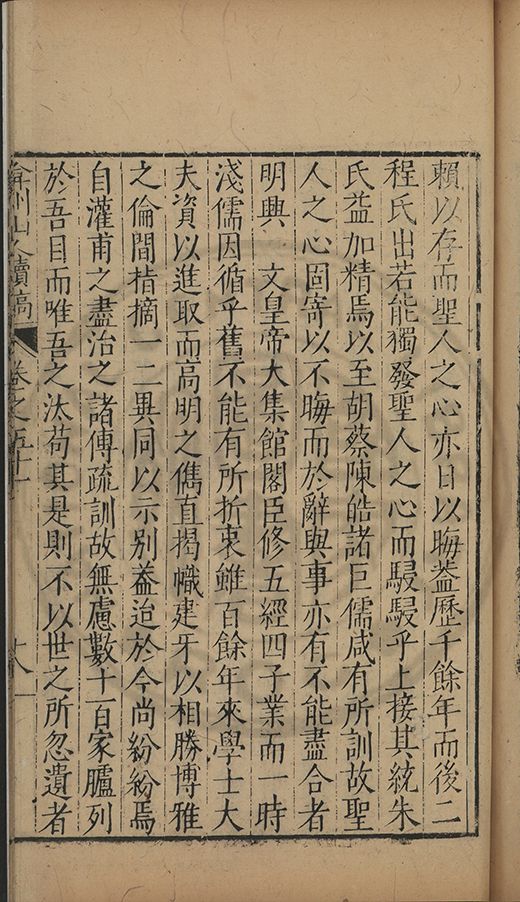 賴以存而聖人之心亦日以晦葢歷千餘年而後二
程氏出若能獨發聖人之心而駸駸乎上接其統朱
氏益加精焉以至胡蔡陳皓諸巨儒咸有所訓故聖
人之心固寄以不晦而於辭與事亦有不能盡合者
明興　文皇帝大集館閣臣修五經四子業而一時
淺儒因循乎舊不能有所折衷雖百餘年來學士大
夫資以進取而高明之儁直揭幟建牙以相勝博雅
之倫間㨖摘一二異同以示别葢迨於今尚紛紛焉
自灌甫之盡治之諸傳疏訓故無慮數十百家臚列
於吾目而唯吾之汰苟其是則不以世之所忽遺者
弇州山人續稿 卷之五十一 十八